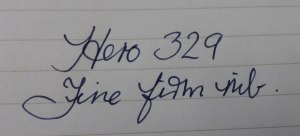 Hero 329
Fine firm nib.